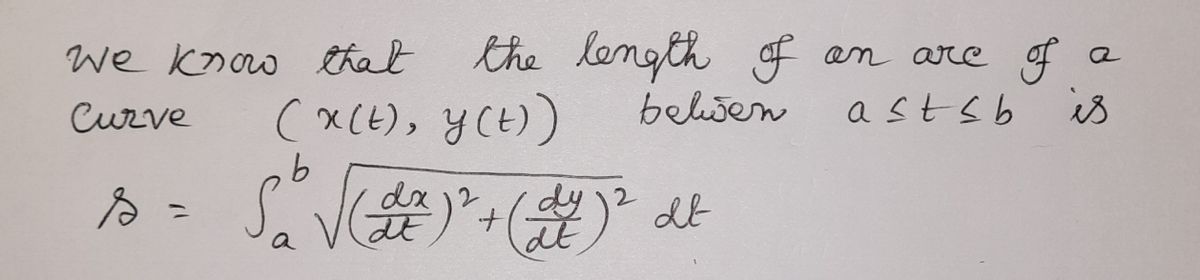 We know that the length of an arc of a
Curve (x(t), y(t)) between a ≤ t ≤ b is
s = ∫ₐᵇ √((dx/dt)² + (dy/dt)²) dt